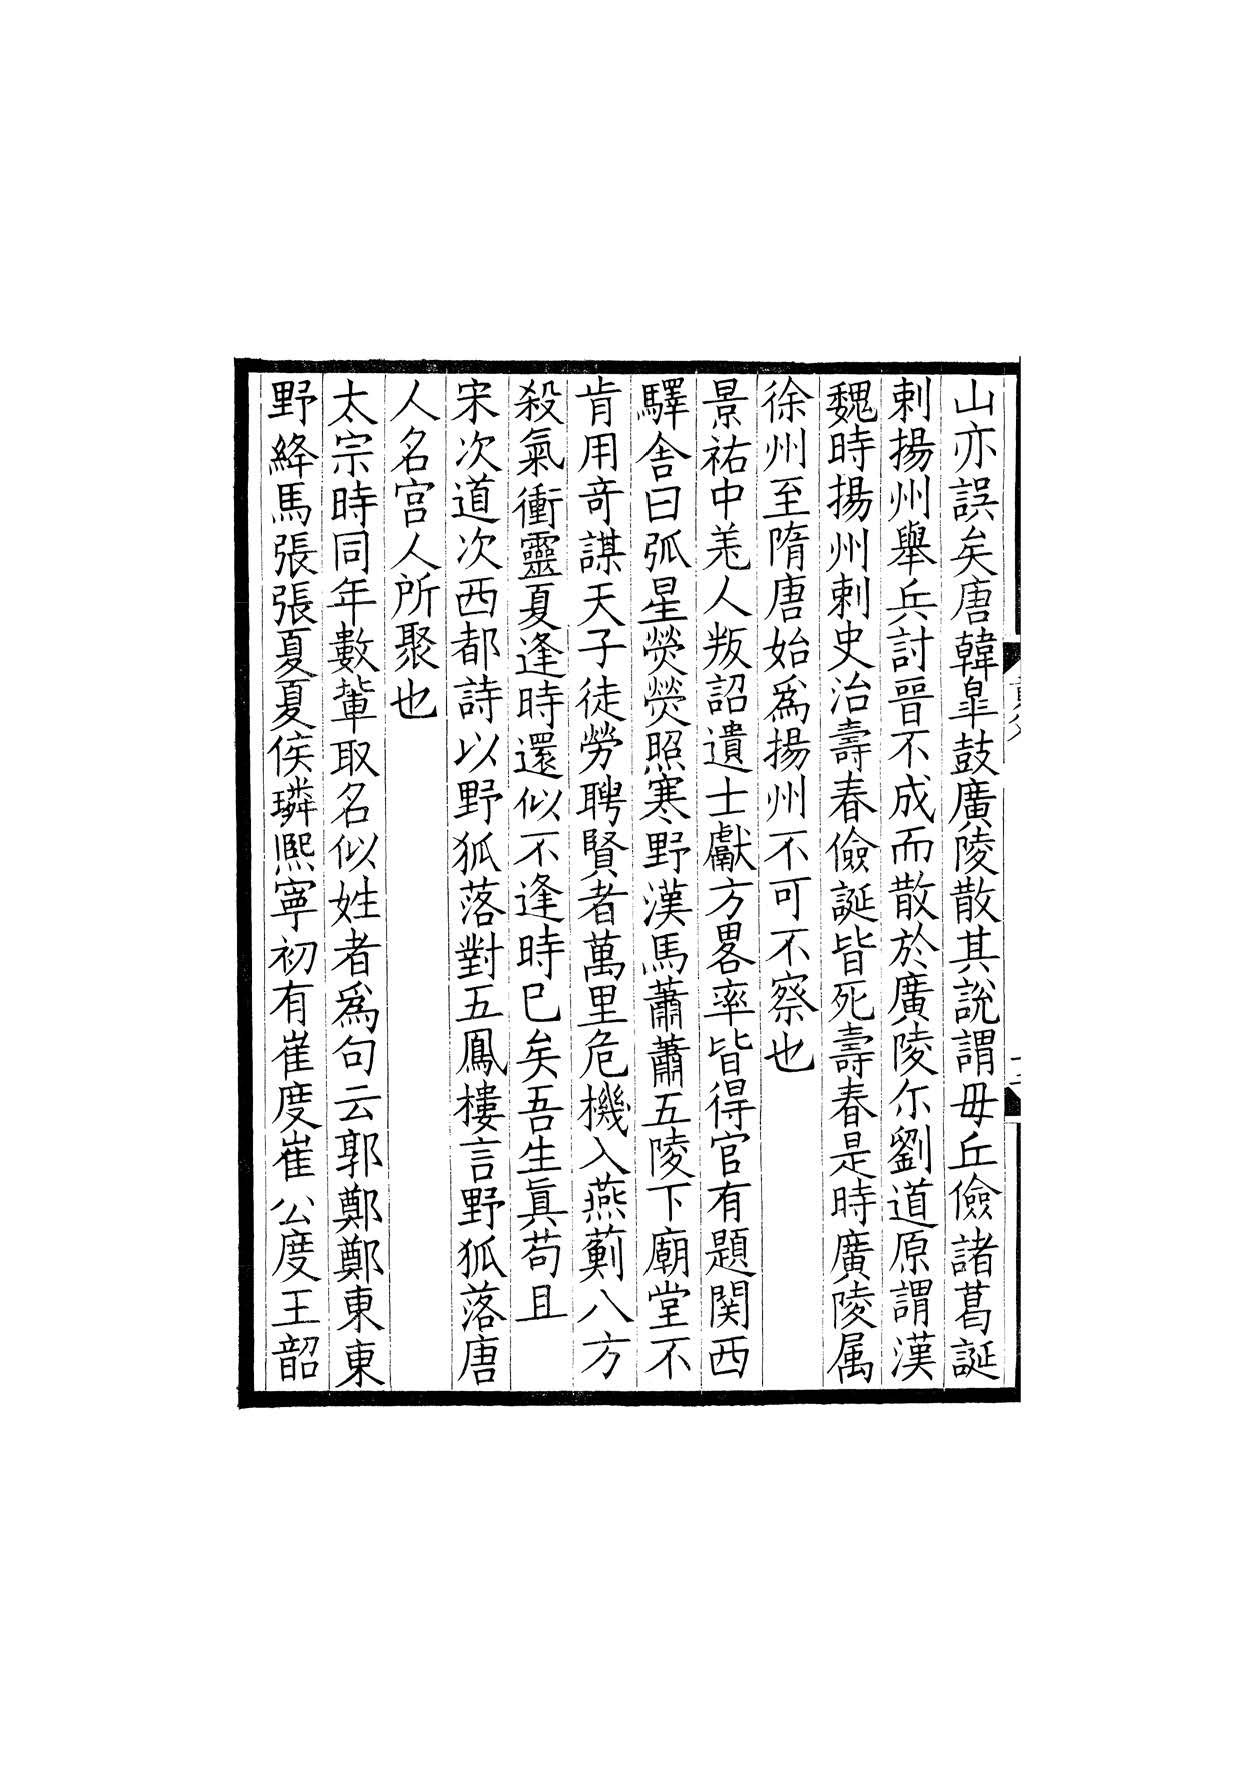 山亦誤矣唐韓臯鼓廣陵散其說謂毋丘儉諸葛誕
刺揚州舉兵討晉不成而散於廣陵尒劉道原謂漢
魏時揚州刺史治壽春儉誕皆死壽春是時廣陵属
徐州至隋唐始爲揚州不可不察也
景祐中羗人叛詔遺士獻方畧率皆得官有題関西
驛舎曰弧星熒熒照寒野漢馬蕭蕭五陵下廟堂不
肯用竒謀天子徒勞聘賢者萬里危機入燕薊八方
殺氣衝靈夏逢時還似不逢時已矣吾生眞苟且
宋次道次西都詩以野狐落對五鳳樓言野狐落唐
人名宫人所聚也
太宗時同年數軰取名似姓者爲句云郭鄭鄭東東
野絳馬張張夏夏侯璘熈寧初有崔度崔公度王韶